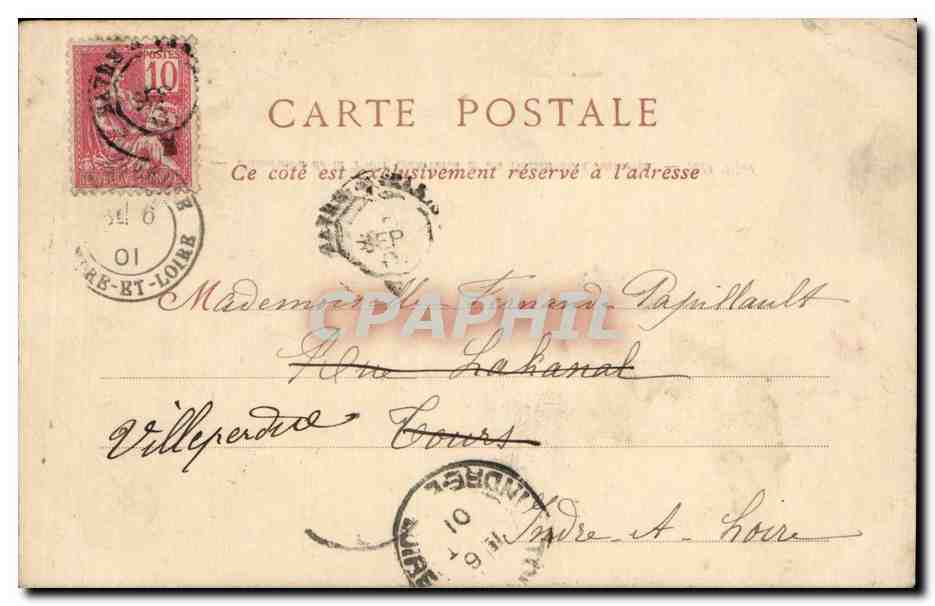 POSTES
10
SEP
6
01
ET-LOIRE
CARTE POSTALE
Ce côté est exclusivement réservé à l'adresse
SEP
Mademoiselle Fernande Papillault
CPAPHIL
Rue Lakanal
Villeperdue Tours
01
6
Indre-et-Loire